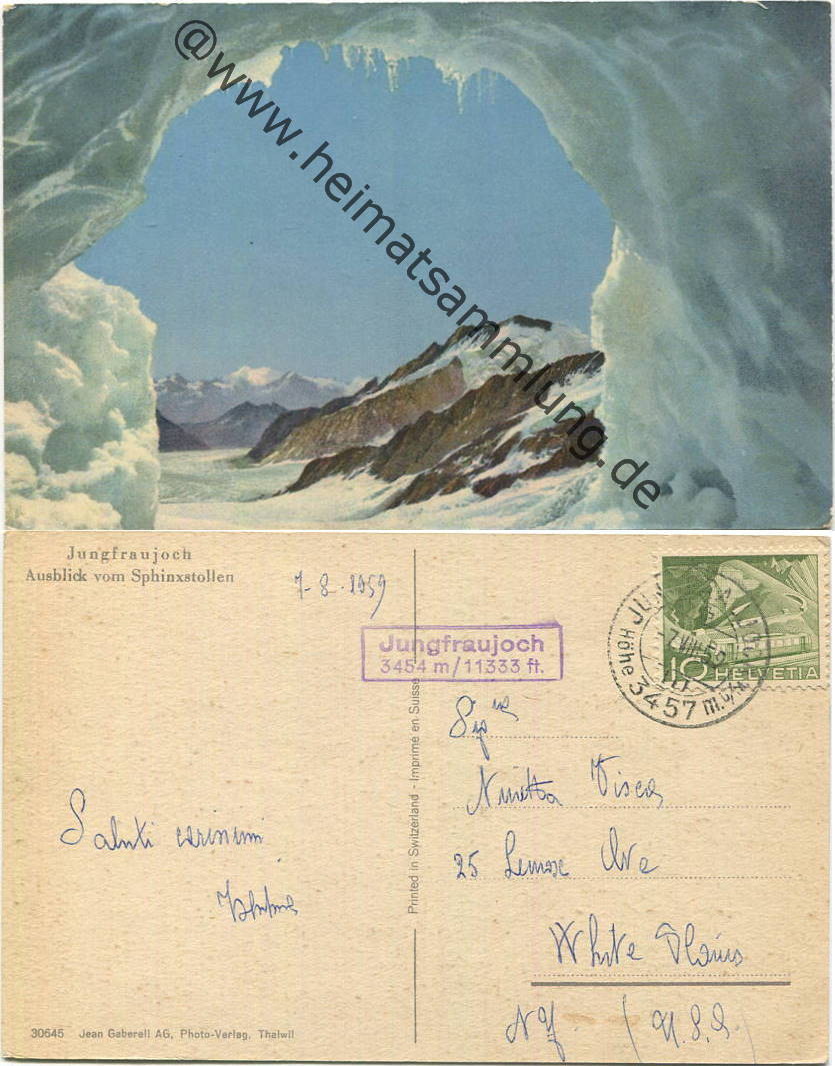 @www.heimatsammlung.de
Jungfraujoch
Ausblick vom Sphinxstollen
7-8.1959
Jungfraujoch
3454 m/11333 ft.
Höhe 3457 m.ü/M
10 HELVETIA
Printed in Switzerland - Imprimé en Suisse
Saluti carissimi
Sig.na
Ninetta
25 Lenox Ave
White Plains
NY. (U.S.A.)
30645 Jean Gaberell AG, Photo-Verlag, Thalwil